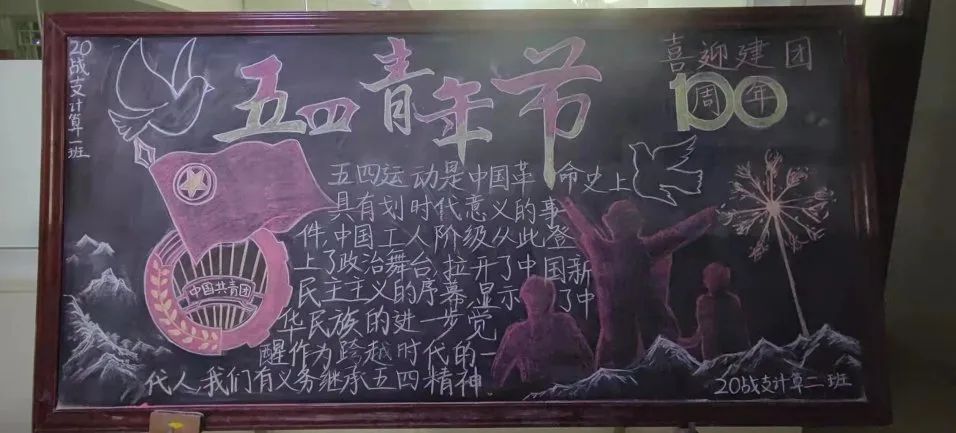 20战支计算一班
五四青年节
喜迎建团
100
周年
五四运动是中国革命史上
具有划时代意义的事
件,中国工人阶级从此登
上了政治舞台,拉开了中国新
民主主义的序幕,显示了中
华民族的进一步觉
醒作为跨越时代的一
代人,我们有义务继承五四精神
中国共青团
20战支计算二班